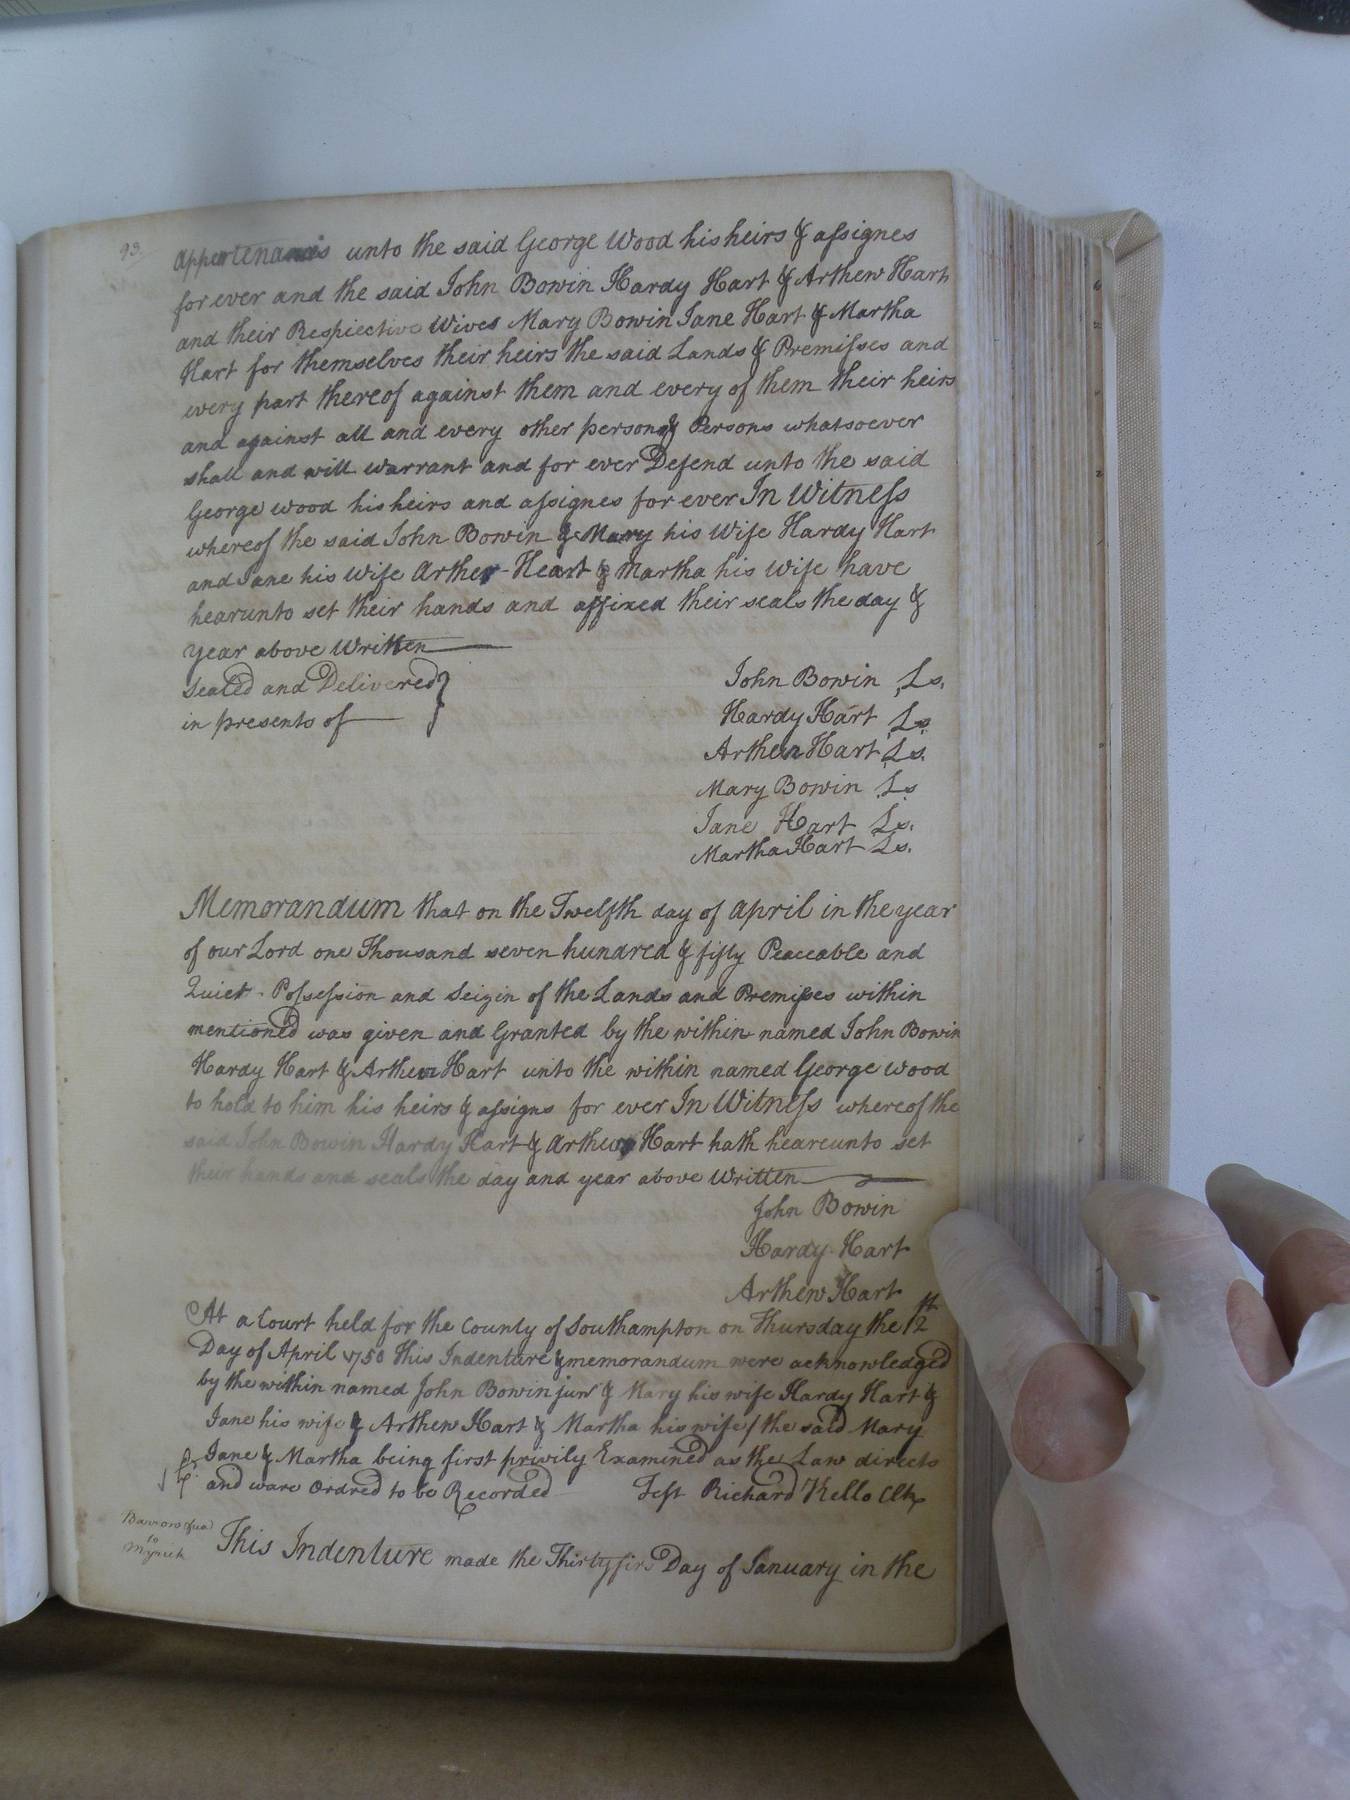 93.
appertenances unto the said George Wood his heirs & assignes
for ever and the said John Bowin Hardy Hart & Arthew Hart
and their Respiective Wives Mary Bowin Jane Hart & Martha
Hart for themselves their heirs the said Lands & Premisses and
every part thereof against them and every of them their heirs
and against all and every other person & Persons whatsoever
shall and will warrant and for ever Defend unto the said
George Wood his heirs and assignes for ever In Witness
whereof the said John Bowin & Mary his Wife Hardy Hart
and Jane his Wife Arther Heart & Martha his Wife have
hearunto set their hands and affixed their seals the day &
year above Written
Sealed and Delivered }
in presents of
John Bowin Ls.
Hardy Hart Ls
Arthew Hart Ls.
Mary Bowin Ls
Jane Hart Ls.
Martha Hart Ls.
Memorandum that on the Twelfth day of April in the year
of our Lord one Thousand seven hundred & fifty Peaceable and
Quiet Possession and Seizin of the Lands and Premisses within
mentioned was given and Granted by the within named John Bowin
Hardy Hart & Arthew Hart unto the within named George Wood
to hold to him his heirs & assigns for ever In Witness whereof the
said John Bowin Hardy Hart & Arthew Hart hath heareunto set
their hands and seals the day and year above Written
John Bowin
Hardy Hart
Arthew Hart
At a Court held for the County of Southampton on Thursday the 12th
Day of April 1750 This Indenture & memorandum were acknowledged
by the within named John Bowin junr & Mary his wife Hardy Hart &
Jane his wife & Arthew Hart & Martha his wife / the said Mary
Jane & Martha being first privily Examined as the Law directs
and ware Ordred to be Recorded Test Richard Kello Clk
to
This Indenture made the Thirtyfirs Day of January in the